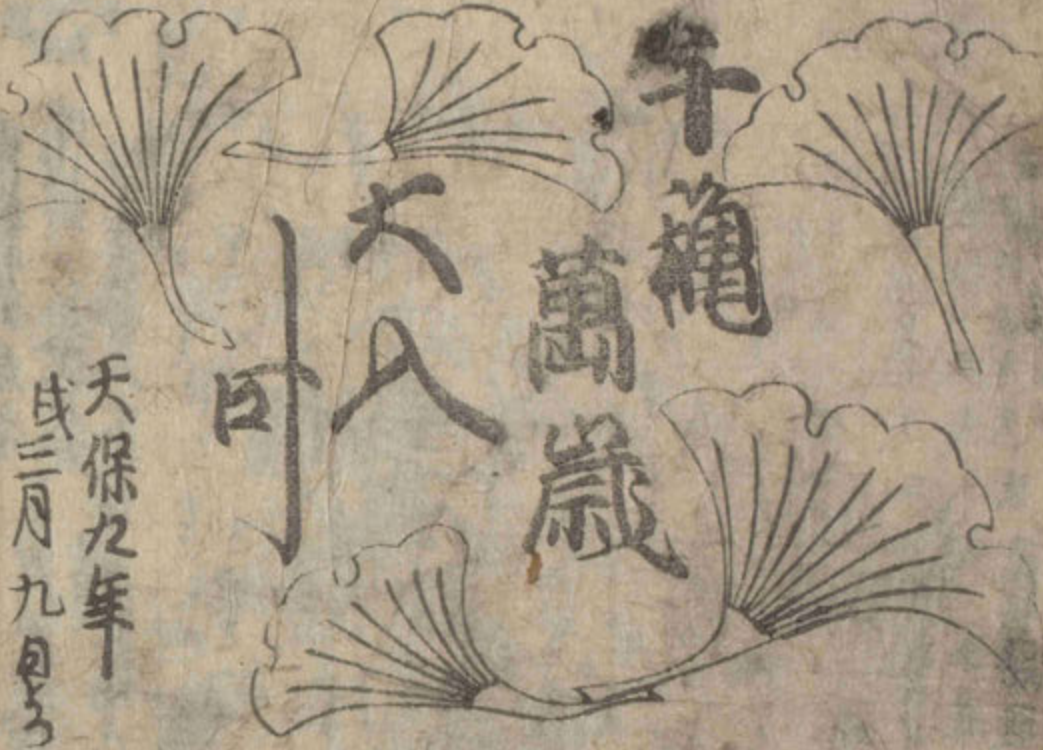 千穐
萬歳
大入
叶
天保九年
戌三月九日より